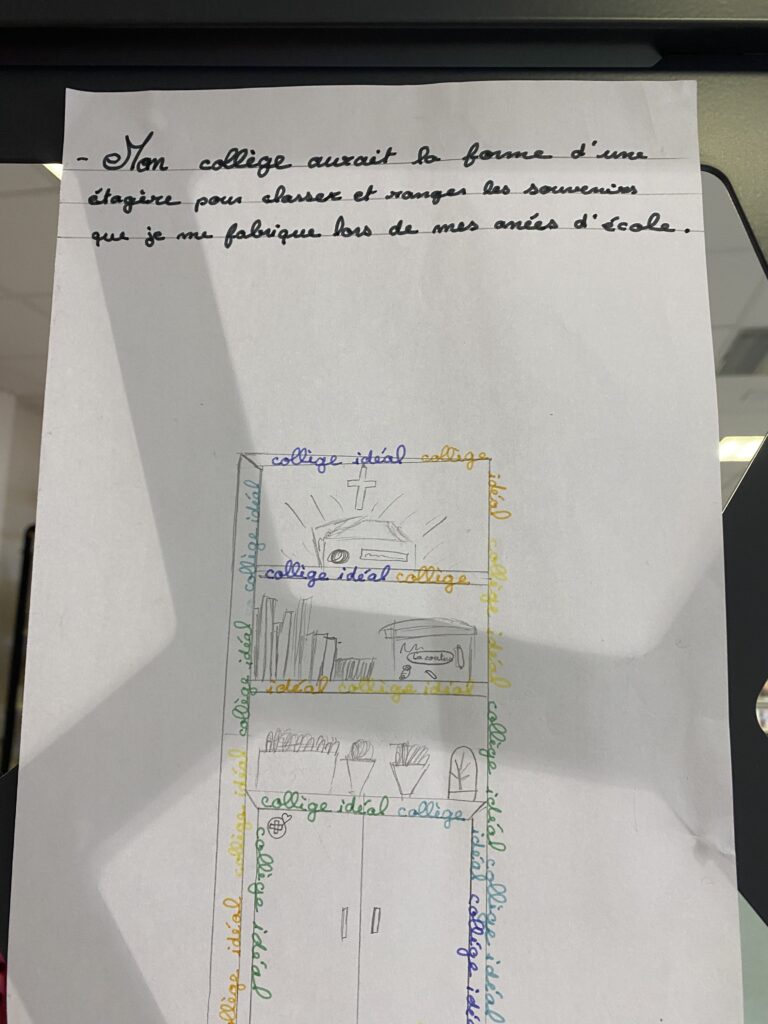 - Mon collège aurait la forme d'une
étagère pour classer et ranger les souvenirs
que je me fabrique lors de mes anées d'école.
collège idéal collège
idéal
collège idéal
collège idéal
collège idéal collège
collège idéal
idéal collège idéal
collège idéal
collège idéal
collège idéal collège
collège idéal
collège idéal
collège idéal
idéal collège idéal
collège idéal